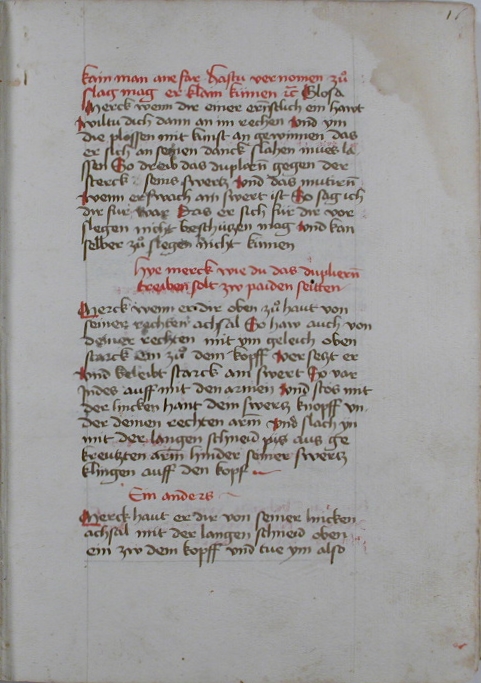 16
kain man ane far hastu vernomen zů
slag mag er klain kumen ꝛc Glosa
Merck wenn dir einer ernstlich ein hawt
wiltu dich dann an im rechen Und ym
die plossen mit kunst an gewinnen das
er sich an seinen danck slahen mues la
ssen So dreib das duplirn gegen der
sterck seins swertz Und das mutirn
Wenn er swach am swert ist So sag ich
dir fur war Das er sich für dir vor
slegen nicht beschützen mag Und kan
selber zů slegen nicht kumen
Hye merck wie du das duplieren
treiben solt zw paiden seitten
Merck wenn er dir oben zů haut von
seiner rechten achsal So haw auch von
deiner rechten mit ym geleich oben
starck Ein zů dem kopff Versetzt er
Und beleibt starck am swert So var
Indes auff mit den armen Und stos mit
der lincken hant dem swertz knopff vn
der deinen rechten arm Und slach yn
mit der langen schneid pis aus ge
kreutzten arm hinder seiner swertz
klingen auff den kopf
Ein anders
Merck haut er dir von seiner lincken
achsal mit der langen schneid oben
ein zw dem kopff vnd tue ym also